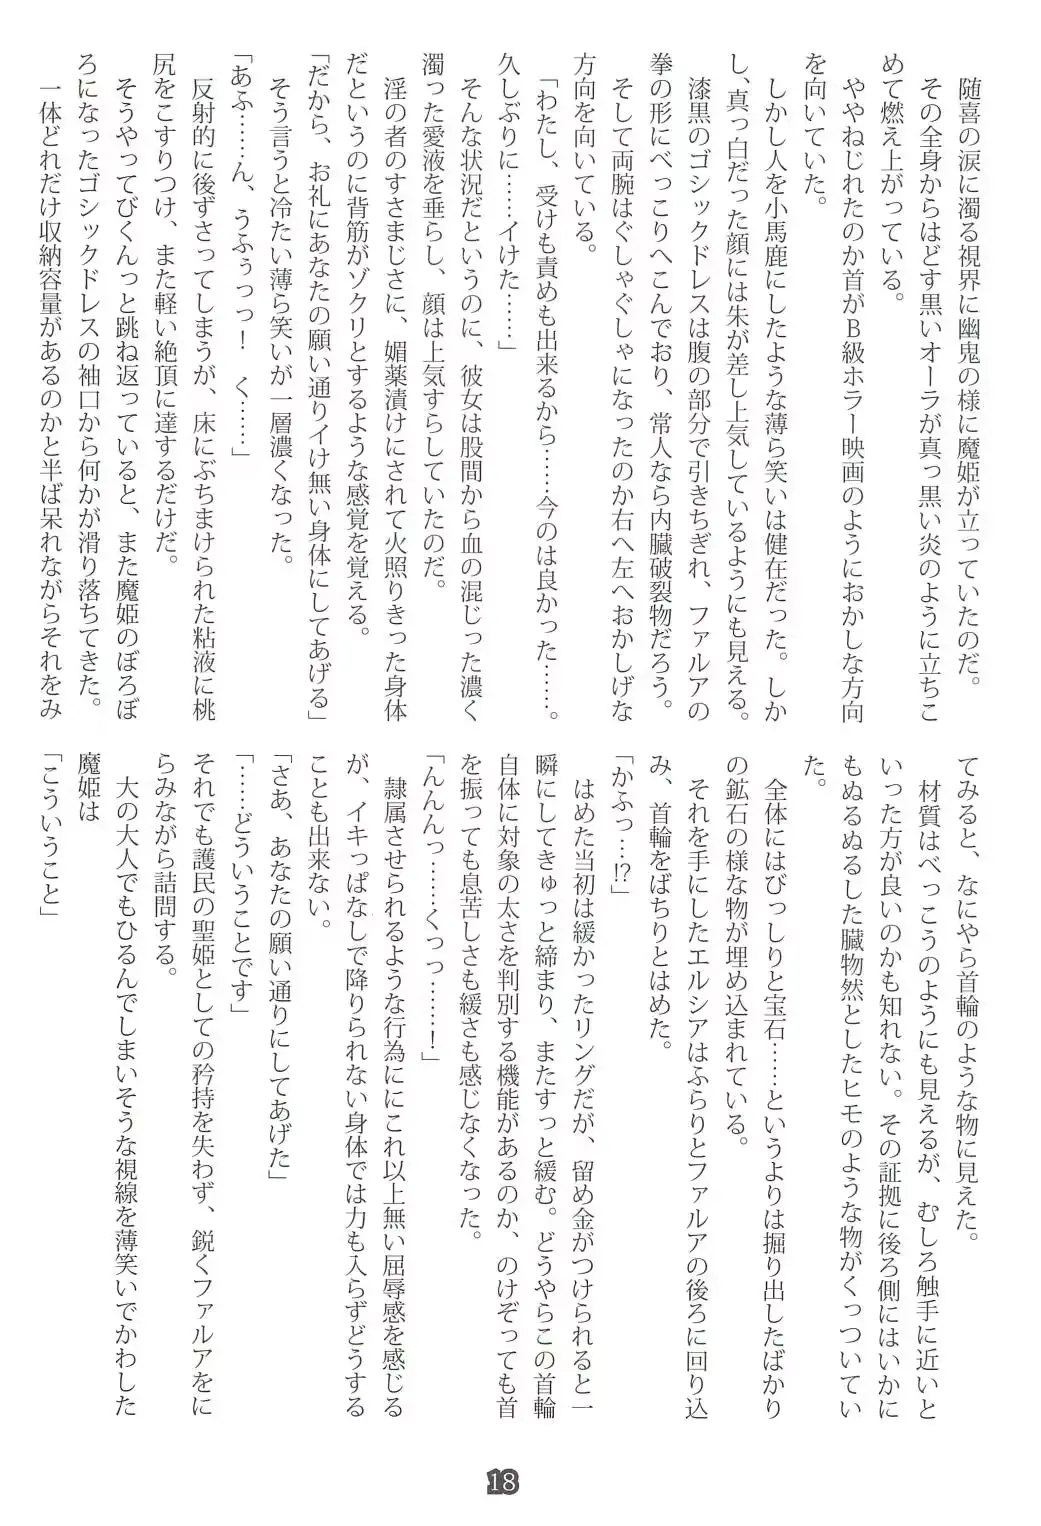 随喜の涙に濁る視界に幽鬼の様に魔姫が立っていたのだ。
その全身からはどす黒いオーラが真っ黒い炎のように立ちこ
めて燃え上がっている。
ややねじれたのか首がＢ級ホラー映画のようにおかしな方向
を向いていた。
しかし人を小馬鹿にしたような薄ら笑いは健在だった。しか
し、真っ白だった顔には朱が差し上気しているようにも見える。
漆黒のゴシックドレスは腹の部分で引きちぎれ、ファルアの
拳の形にべっこりへこんでおり、常人なら内臓破裂物だろう。
そして両腕はぐしゃぐしゃになったのか右へ左へおかしげな
方向を向いている。
「わたし、受けも責めも出来るから……今のは良かった……。
久しぶりに……イけた……」
そんな状況だというのに、彼女は股間から血の混じった濃く
濁った愛液を垂らし、顔は上気すらしていたのだ。
淫の者のすさまじさに、媚薬漬けにされて火照りきった身体
だというのに背筋がゾクリとするような感覚を覚える。
「だから、お礼にあなたの願い通りイけ無い身体にしてあげる」
そう言うと冷たい薄ら笑いが一層濃くなった。
「あふ……ん、うふぅっっ！　く……」
反射的に後ずさってしまうが、床にぶちまけられた粘液に桃
尻をこすりつけ、また軽い絶頂に達するだけだ。
そうやってびくんっと跳ね返っていると、また魔姫のぼろぼ
ろになったゴシックドレスの袖口から何かが滑り落ちてきた。
一体どれだけ収納容量があるのかと半ば呆れながらそれをみ
てみると、なにやら首輪のような物に見えた。
材質はべっこうのようにも見えるが、むしろ触手に近いと
いった方が良いのかも知れない。その証拠に後ろ側にはいかに
もぬるぬるした臓物然としたヒモのような物がくっついてい
た。
全体にはびっしりと宝石……というよりは掘り出したばかり
の鉱石の様な物が埋め込まれている。
それを手にしたエルシアはふらりとファルアの後ろに回り込
み、首輪をぱちりとはめた。
「かふっ…!?」
はめた当初は緩かったリングだが、留め金がつけられると一
瞬にしてきゅっと締まり、またすっと緩む。どうやらこの首輪
自体に対象の太さを判別する機能があるのか、のけぞっても首
を振っても息苦しさも緩さも感じなくなった。
「んんんっ……くっっ……！」
隷属させられるような行為ににこれ以上無い屈辱感を感じる
が、イキっぱなしで降りられない身体では力も入らずどうする
ことも出来ない。
「さあ、あなたの願い通りにしてあげた」
「……どういうことです」
それでも護民の聖姫としての矜持を失わず、鋭くファルアをに
らみながら詰問する。
大の大人でもひるんでしまいそうな視線を薄笑いでかわした
魔姫は
「こういうこと」
18